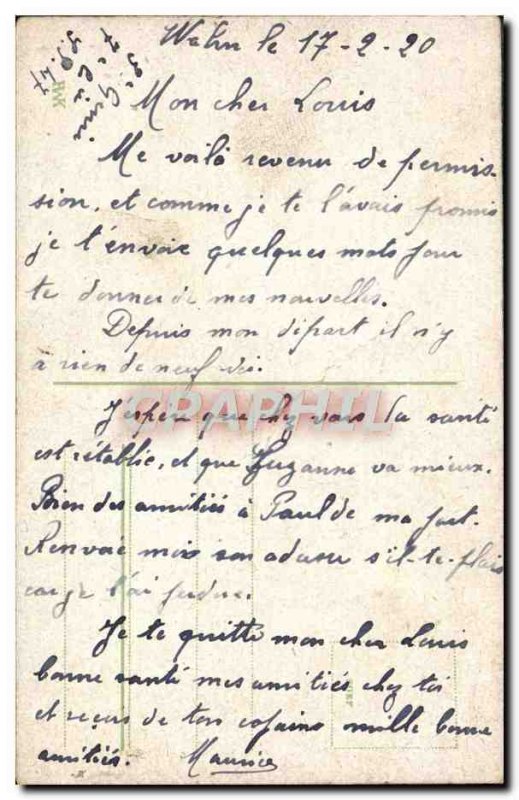 Wahn le 17-2-20
S.P. 47
Mon cher Louis
Me voilà revenu de permis-
sion, et comme je te l'avais promis
je t'envoie quelques mots pour
te donner de mes nouvelles.
Depuis mon départ il n'y
a rien de neuf ici.
J'espère que chez vous la santé
est rétablie, et que Suzanne va mieux.
Bien des amitiés à Paul de ma part.
Renvoie mois son adresse s'il-te-plais
car je l'ai perdue.
Je te quitte mon cher Louis
bonne santé mes amitiés chez toi
et reçois de ton copain mille bonne
amitiés. Maurice
CPAPHIL